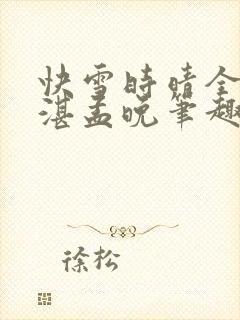 快雪時晴全
湛孟晚筆趣
徐松